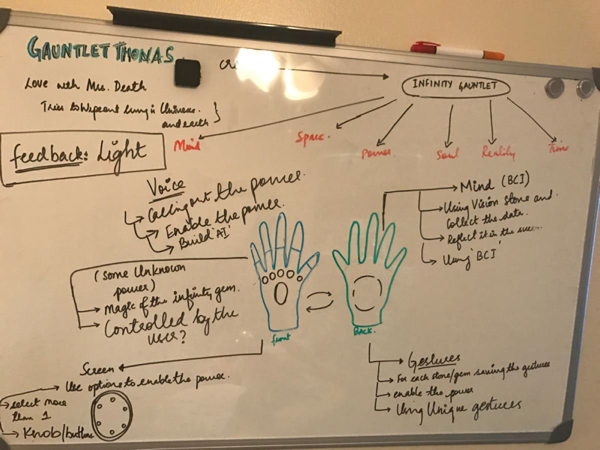 GAUNTLET THONAS
Love with Mrs. Death
Tries to Wipeout living in Universe.
and earth
INFINITY GAUNTLET
Mind
Space
Power
Soul
Reality
Time
feedback: Light
Voice
Calling out the power.
Enable the power.
Build 'AI'
Mind (BCI)
Using Vision stone and
collect the data.
Reflect it in the
Using 'BCI'
(some Unknown
power)
Magic of the infinity gem.
Controlled by the
user?
front
Back.
Screen
Use options to enable the power.
select more
than 1
Knob/buttons
Gestures
For each stone/gem saving the gestures
enable the power
Using Unique gestures